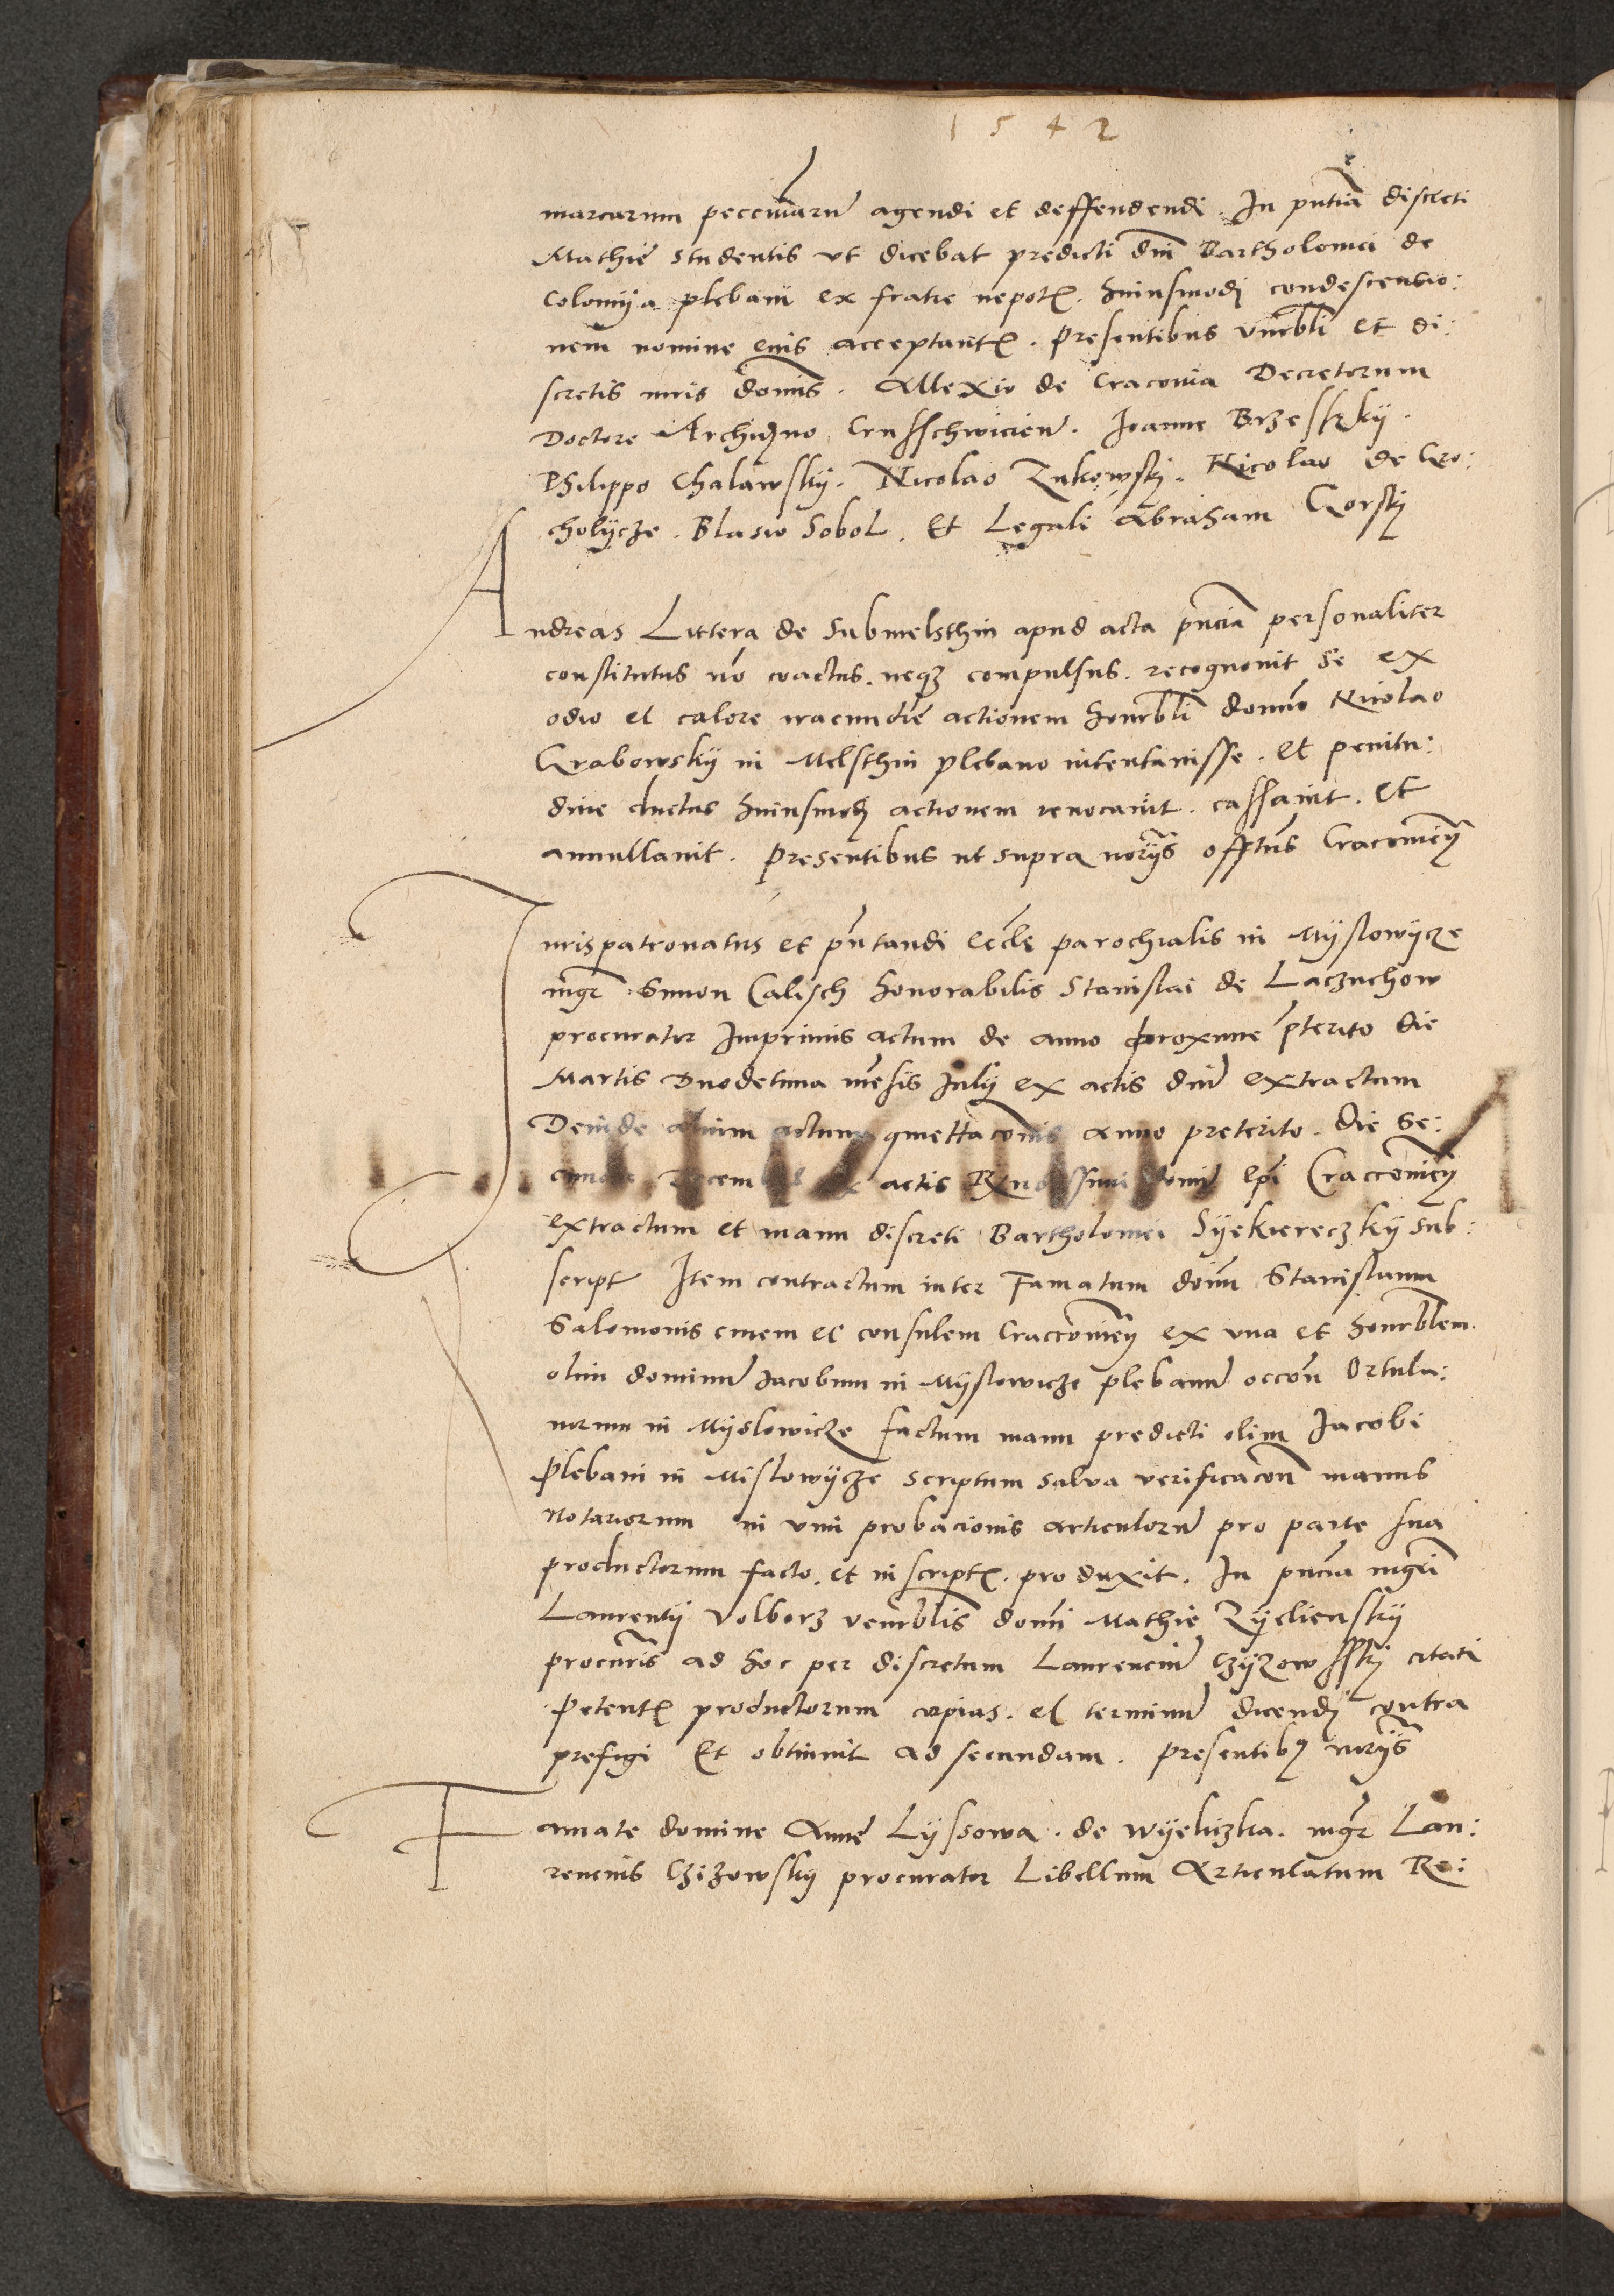 1542
marcarum peccuniarum agendi et deffendendi. In pntia discreti
Mathie studentis ut dicebat predicti dni Bartholomei de
Colomya plebani ex fratre nepotis. huiusmodi condescensio:
nem nomine eius acceptantis. Presentibus venerabli et di:
scretis viris domis. Allexio de Cracovia Decretorum
Doctore Archidno Crusschwicien. Ioanne Brzesszky.
Philippo Chalawsky. Nicolao Zukowsky. Nicolao de Gro:
cholycze. Blasio Sobol. Et Legali Abraham Gorsky
Andreas Littera de Submelsthin apud acta pncia personaliter
constitutus no coactus. neqz compulsus. recognovit se ex
odio et calore iracundie actionem honorabli domno Nicolao
Grabowsky in Melsthin plebano intentavisse. Et penitu:
dine ductus huiusmodi actionem revocavit. cassavit. et
annullavit. Presentibus ut supra notarys offtus Cracovien
Iurispatronatus et pntandi eccle parochialis in Myslowycze
mgr Simon Calisch honorabilis Stanislai de Laczuchow
procurator Imprimis actum de anno proxime pterito die
Martis Duodecima mensis July ex actis dnie extractum
Deinde alium actum quiettaconis anno preterito. die se:
cunda Decembris ex actis Rendissimi domini Epi Cracovien
extractum et manu discreti Bartholomei Syekiereczky sub:
script Item contractum inter Famatum domm Stanislaum
Salomonis civem et consulem Cracovien ex una et honorablem.
olim dominum Iacobum in Myslowicze plebanum occone Ortula:
norum in Myslowicze factum manu predicti olim Iacobi
Plebani in Mislowycze scriptum salva verificacone manus
Notariorum in vim probacionis articulorum pro parte sua
productorum facto. et in scriptis. produxit. In pncia mgri
Laurenty Volborz venerablis domi Mathie Zyeliensky
procuris ad hoc per discretum Laurencium Czyzowssky citati
Petentis productorum copias. et terminum dicendi contra
prefigi Et obtinuit ad secundam. Presentibus notarys
Famate domine Anne Lyssowa. de Wyeliczka. mgr Lau:
rencius Czizowsky procurator Libellum Articulatum Re: